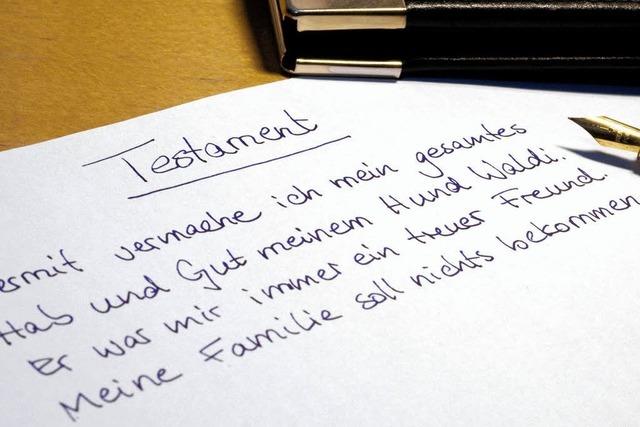 Testament
ermit vermache ich mein gesamtes
Hab und Gut meinem Hund Waldi.
Er war mir immer ein treuer Freund.
Meine Familie soll nichts bekommen